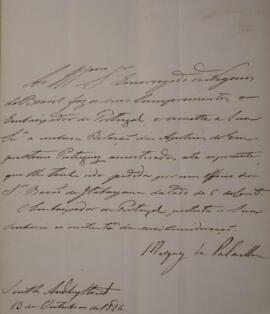 Ao Ill.mo Sr. Encarregado de Negocios
do Brazil faz os seus Cumprimentos o
Embaixador de Portugal, e remette a Sua
Sa. a inclusa Relação das Apolices do Em-
prestimo Portuguez amortizadas até ao presente,
que lhe tinha sido pedida por um officio do
Sr. Barão de Itabayana da data de 6 do corrte.
O Embaixador de Portugal protesta a Sua
Senhoria os protestos da sua Consideração.
Marquez de Palmella
South Audley Street
13 de Outubro de 1826.